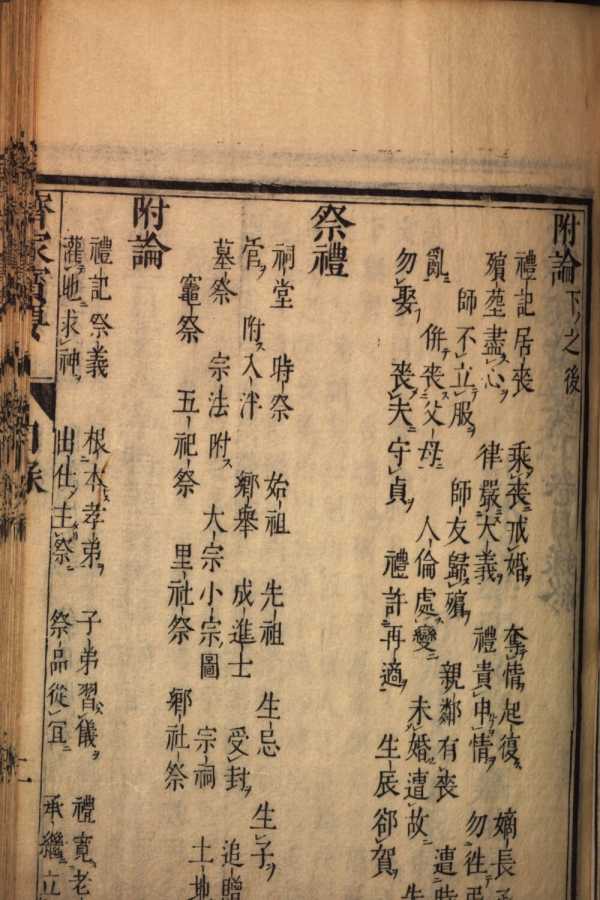 附論 下ノ之後
禮記居喪 乘喪戒婚 奪情起復 嫡長
殯塟盡心 律嚴大義 禮貴申情 勿徃
師不立服 師友歸殯 親鄰有喪 遭時
亂併喪父母 人倫處變 未婚遭故 先
勿娶 喪夫守貞 禮許再適 生辰郤賀
祭禮
祠堂 時祭 始祖 先祖 生忌 生子
官 附入泮 鄉舉 成進士 受封 追贈
墓祭 宗法附 大宗小宗圖 宗祠 土地
竈祭 五祀祭 里社祭 鄉社祭
附論
禮記祭義 根本孝弟 子弟習儀 禮寬老
灌地求神 由仕主祭 祭品從宜 承繼立
齊家寶要 目錄